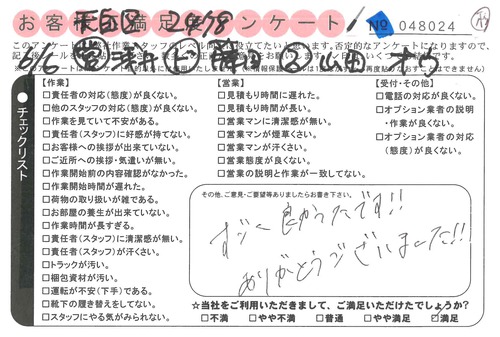 お客様満足度アンケート
№ 048024
チェックリスト
【作業】
□責任者の対応(態度)が良くない。
□他のスタッフの対応(態度)が良くない。
□作業を見ていて不安がある。
□責任者(スタッフ)に好感が持てない。
□お客様への挨拶が出来ていない。
□ご近所への挨拶・気遣いが無い。
□作業開始前の内容確認がなかった。
□作業開始時間が遅れた。
□荷物の取り扱いが雑である。
□お部屋の養生が出来ていない。
□作業時間が長すぎる。
□責任者(スタッフ)に清潔感が無い。
□責任者(スタッフ)が汗くさい。
□トラックが汚い。
□梱包資材が汚い。
□運転が不安(下手)である。
□靴下の履き替えをしてない。
□スタッフにやる気がみられない。
【営業】
□見積もり時間に遅れた。
□見積もり時間が長い。
□営業マンに清潔感が無い。
□営業マンが煙草くさい。
□営業マンが汗くさい。
□営業態度が良くない。
□営業の説明と作業が一致してない。
【受付・その他】
□電話の対応が良くない。
□オプション業者の説明
・作業が良くない。
□オプション業者の対応
(態度)が良くない。
その他、ご意見・ご要望等ありましたらお書き下さい。
すごく良かったです!!
ありがとうございました!!
☆当社をご利用いただきまして、ご満足いただけたでしょうか?
□不満 □やや不満 □普通 □やや満足 ☑満足